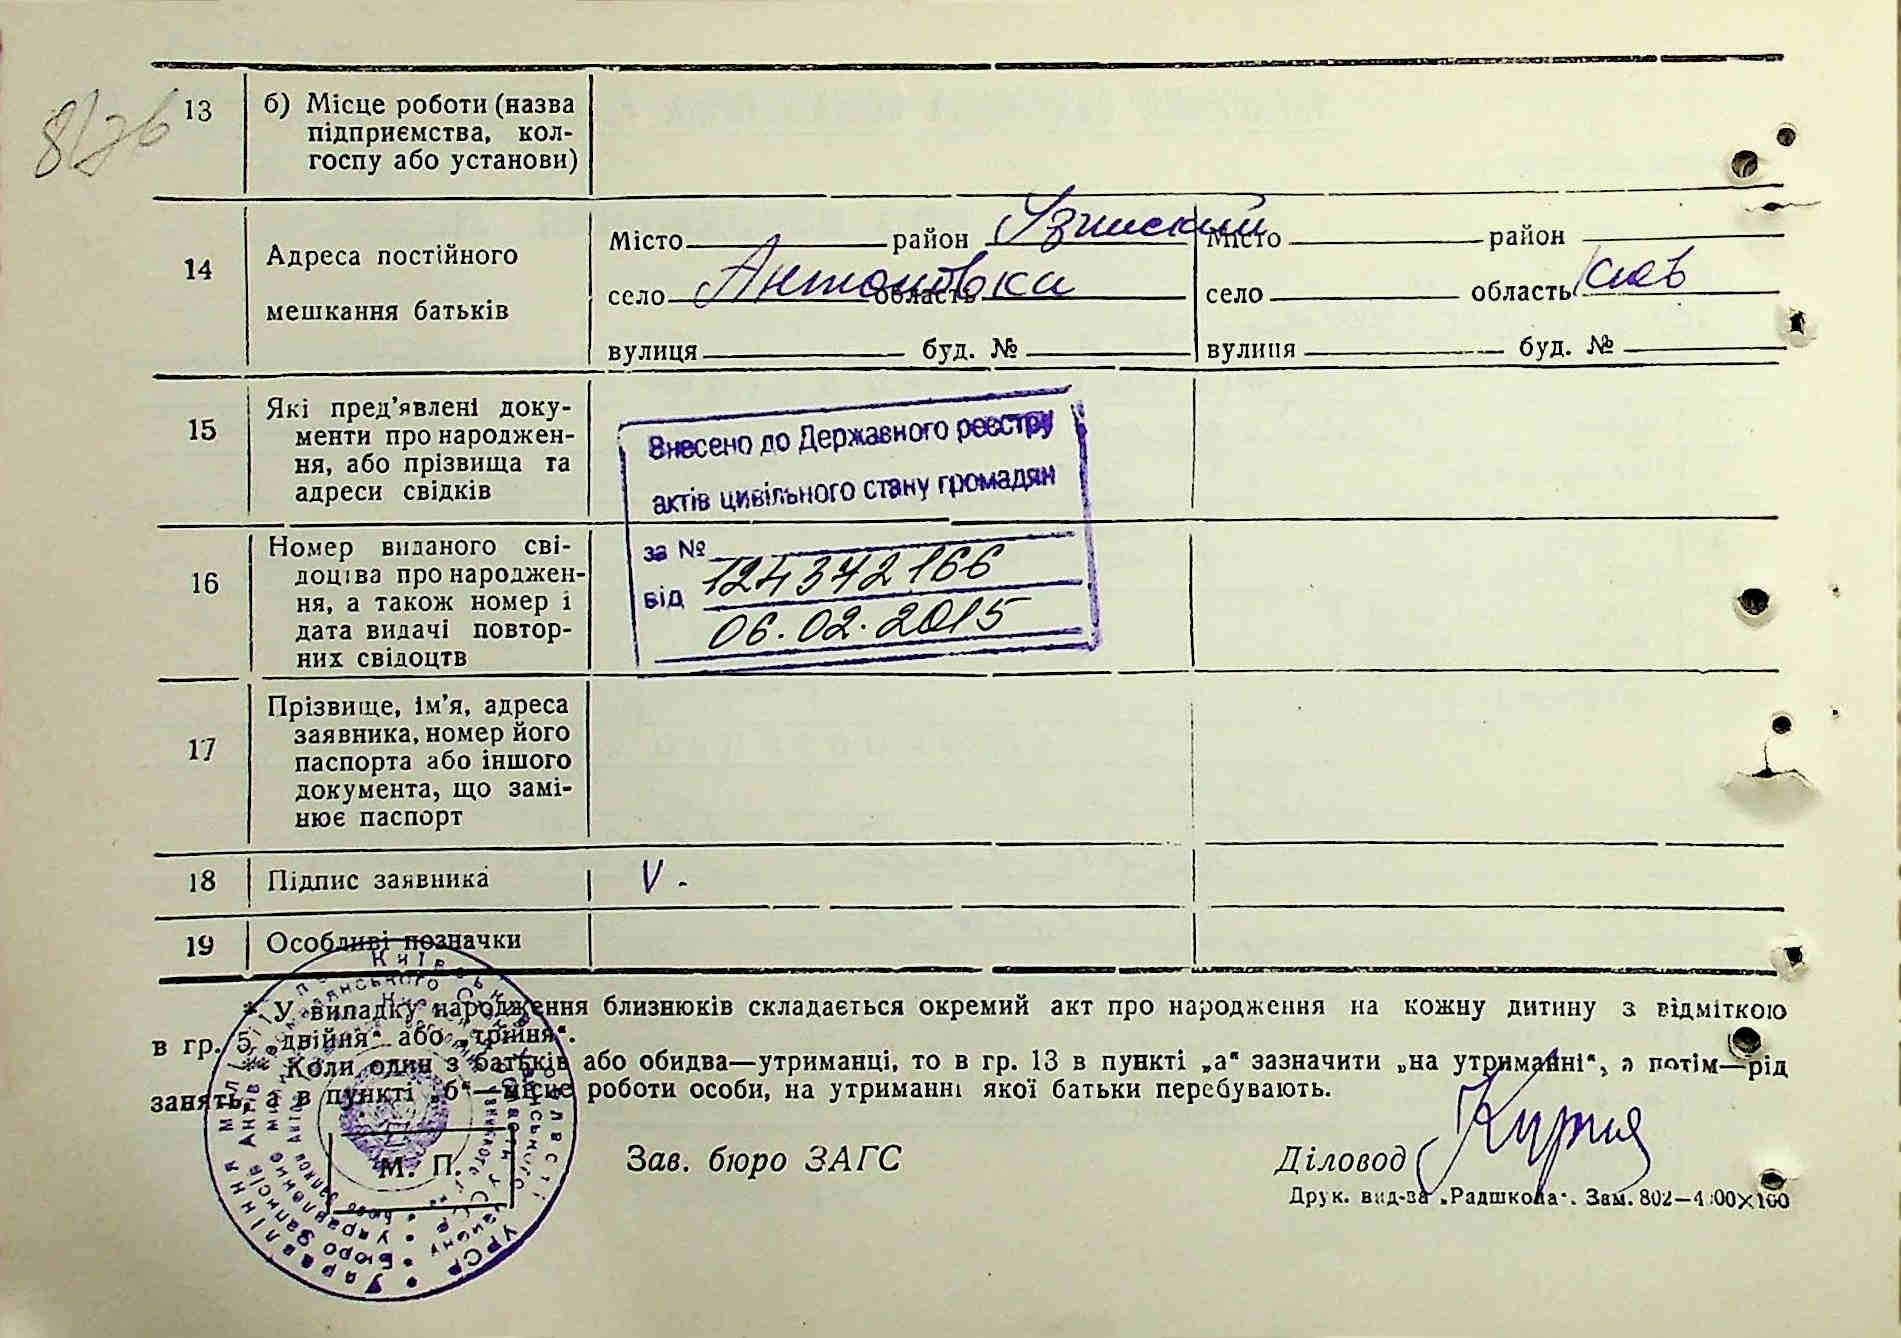 8/76
13 б) Місце роботи (назва
підприємства, кол-
госпу або установи)
14 Адреса постійного
мешкання батьків
Місто район Узинский
село Антоновка область
вулиця буд. №
Місто район
село область Киев
вулиця буд. №
15 Які пред’явлені доку-
менти про народжен-
ня, або прізвища та
адреси свідків
Внесено до Державного реєстру
актів цивільного стану громадян
за № 124372166
від 06.02.2015
16 Номер виданого сві-
доцтва про народжен-
ня, а також номер і
дата видачі повтор-
них свідоцтв
17 Прізвище, ім’я, адреса
заявника, номер його
паспорта або іншого
документа, що замі-
нює паспорт
18 Підпис заявника V -
19 Особливі позначки
* У випадку народження близнюків складається окремий акт про народження на кожну дитину з відміткою
в гр. 5 „двійня“ або „трійня“.
Коли один з батьків або обидва—утриманці, то в гр. 13 в пункті „а“ зазначити „на утриманні“, а потім—рід
занять, а в пункті „б“—місце роботи особи, на утриманні якої батьки перебувають.
М. П. Зав. бюро ЗАГС Діловод
Друк. вид-ва „Радшкола“. Зам. 802—4000×100